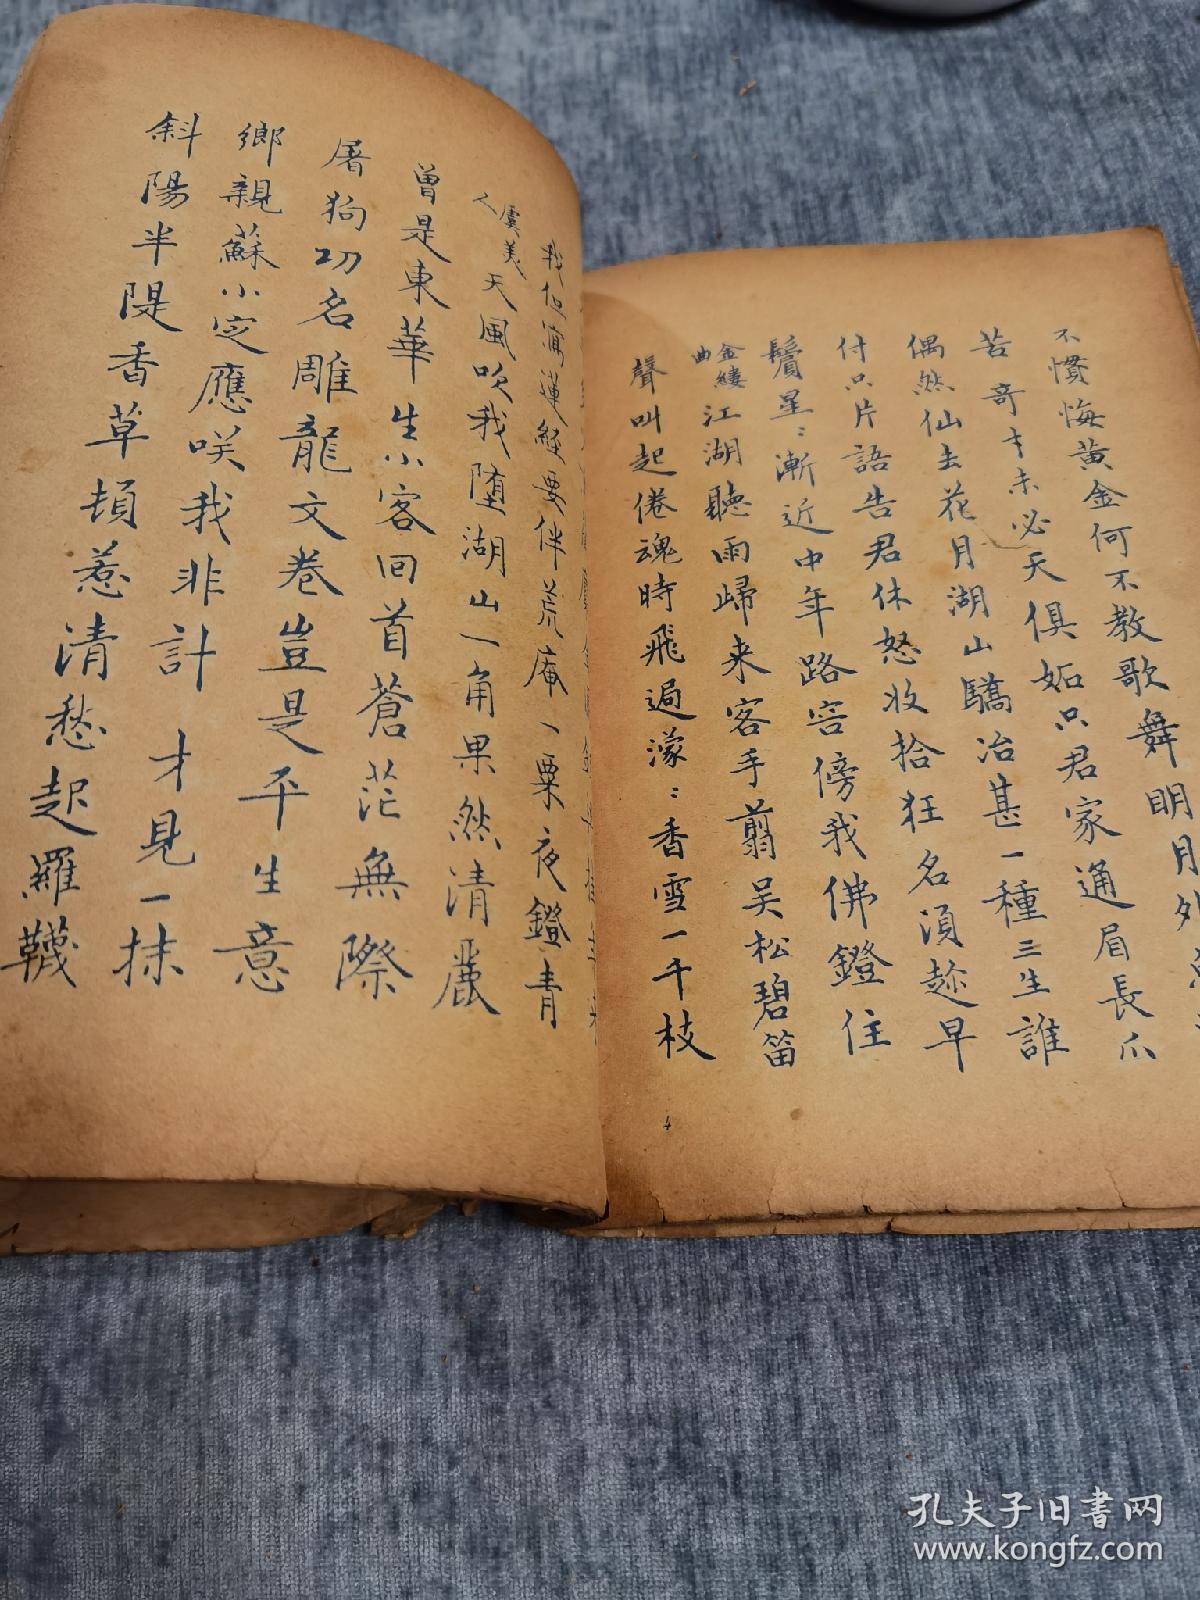 不慣悔黃金何不教歌舞明月外
苦奇才未必天俱妬只君家通眉長爪
偶然仙去花月湖山驕冶甚一種三生誰
付只片語告君休怒收拾狂名須趂早
鬢星〻漸近中年路容傍我佛鐙住
金縷曲江湖聽雨歸来客手翦吳松碧笛
聲叫起倦魂時飛過濛〻香雪一千枝
4
我但寫蓮經要伴荒庵一粟夜鐙青
虞美人
天風吹我墮湖山一角果然清麗
曾是東華生小客回首蒼茫無際
屠狗功名雕龍文卷豈是平生意
鄉親蘇小定應咲我非計 才見一抹
斜陽半隄香草頓惹清愁起羅韈
孔夫子旧書网
www.kongfz.com